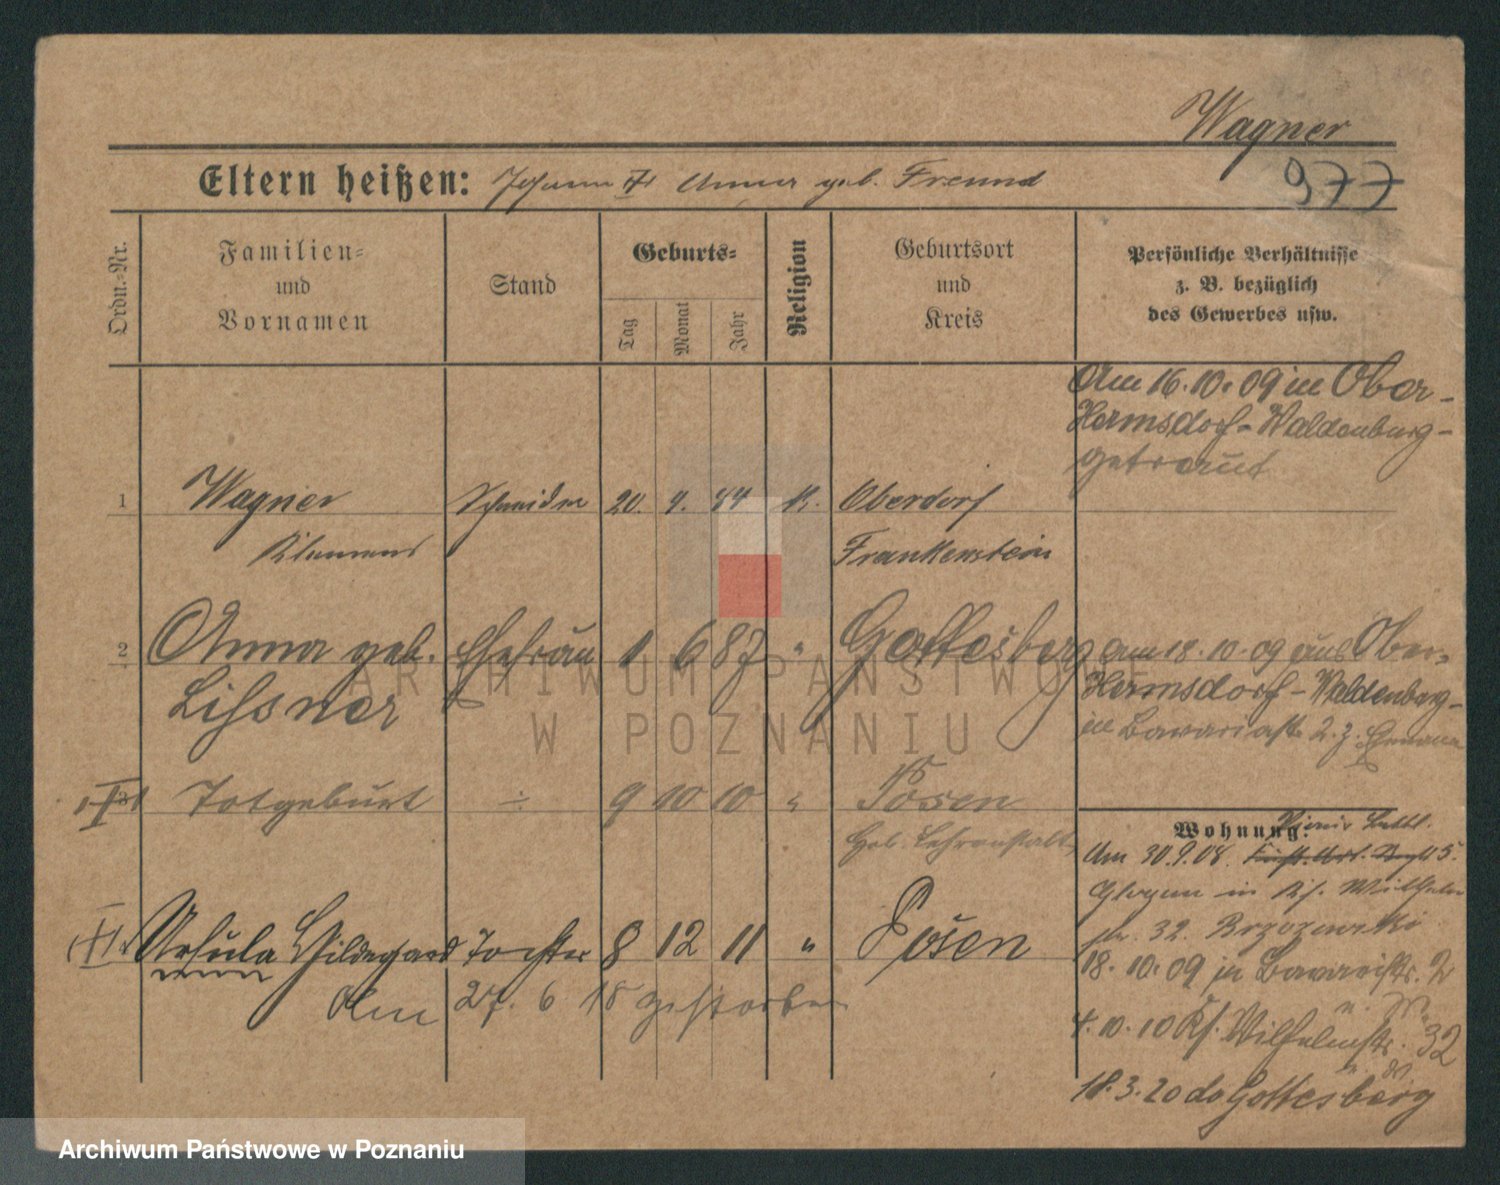 Wagner
977
Eltern heißen: Johann u Anna geb. Freund
Ordn.-Nr.
Familien- und Vornamen
Stand
Geburts-
Tag
Monat
Jahr
Religion
Geburtsort und Kreis
Persönliche Verhältnisse
z. B. bezüglich
des Gewerbes usw.
Am 16.10.09 in Ober-
Hermsdorf-Waldenburg-
getraut
1 Wagner Schneider 20. 4. 84 K. Oberdorf
Klemens Frankenstein
2 Anna geb. Ehefrau 1 6 87 " Gottesberg am 18.10.09 aus Ober-
Lissner Hermsdorf-Waldenburg-
in Bavariastr. 2. z. Ehemann
3 Totgeburt ÷ 9 10 10 " Posen
Geb. Lehranstalt
Wohnung:
Am 30.9.08. 5.
Glogau in Ks. Wilhelm
str. 32. Brzozowski
Ursula Hildegard Tochter 8 12 11 " Posen
Am 27. 6 18 gestorben
18.10.09 in Bavariastr. 2
4.10.10 Ks. Wilhelmstr. 32
18.3.20 do Gottesberg
ARCHIWUM PAŃSTWOWE
W POZNANIU
Archiwum Państwowe w Poznaniu